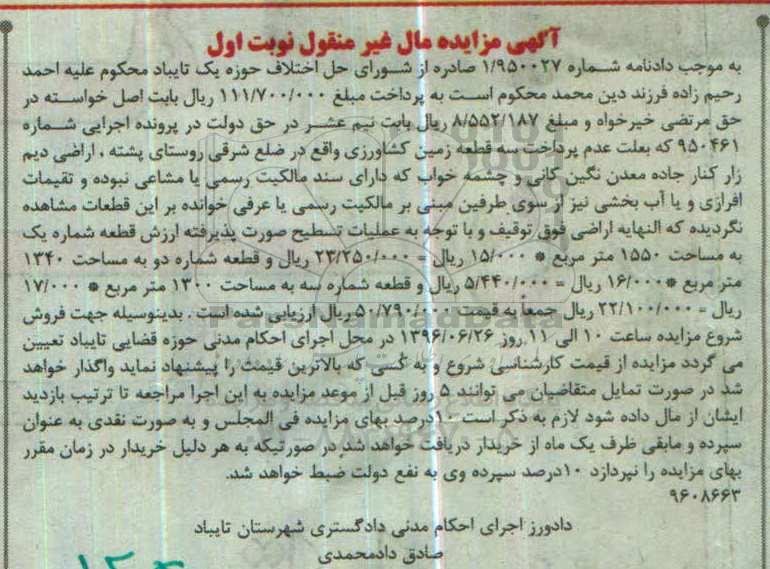 آگهی مزایده مال غیر منقول نوبت اول
به موجب دادنامه شماره ۱/۹۵۰۰۲۷ صادره از شورای حل اختلاف حوزه یک تایباد محکوم علیه احمد
رحیم زاده فرزند دین محمد محکوم است به پرداخت مبلغ ۱۱۱/۷۰۰/۰۰۰ ریال بابت اصل خواسته در
حق مرتضی خیرخواه و مبلغ ۸/۵۵۲/۱۸۷ ریال بابت نیم عشر در حق دولت در پرونده اجرایی شماره
۹۵۰۴۶۱ که بعلت عدم پرداخت سه قطعه زمین کشاورزی واقع در ضلع شرقی روستای پشته ، اراضی دیم
زار کنار جاده معدن نگین کانی و چشمه خواب که دارای سند مالکیت رسمی یا مشاعی نبوده و تقیمات
افرازی و یا آب بخشی نیز از سوی طرفین مبنی بر مالکیت رسمی یا عرفی خوانده بر این قطعات مشاهده
نگردیده که النهایه اراضی فوق توقیف و با توجه به عملیات تسطیح صورت پذیرفته ارزش قطعه شماره یک
به مساحت ۱۵۵۰ متر مربع * ۱۵/۰۰۰ ریال = ۲۳/۲۵۰/۰۰۰ ریال و قطعه شماره دو به مساحت ۱۳۴۰
متر مربع *۱۶/۰۰۰ ریال = ۵/۴۴۰/۰۰۰ ریال و قطعه شماره سه به مساحت ۱۳۰۰ متر مربع * ۱۷/۰۰۰
ریال = ۲۲/۱۰۰/۰۰۰ ریال جمعاً به قیمت ۵۰/۷۹۰/۰۰۰ ریال ارزیابی شده است . بدینوسیله جهت فروش
شروع مزایده ساعت ۱۰ الی ۱۱ روز ۱۳۹۶/۰۶/۲۶ در محل اجرای احکام مدنی حوزه قضایی تایباد تعیین
می گردد مزایده از قیمت کارشناسی شروع و به کسی که بالاترین قیمت را پیشنهاد نماید واگذار خواهد
شد در صورت تمایل متقاضیان می توانند ۵ روز قبل از موعد مزایده به این اجرا مراجعه تا ترتیب بازدید
ایشان از مال داده شود لازم به ذکر است ۱۰درصد بهای مزایده فی المجلس و به صورت نقدی به عنوان
سپرده و مابقی ظرف یک ماه از خریدار دریافت خواهد شد در صورتیکه به هر دلیل خریدار در زمان مقرر
بهای مزایده را نپردازد ۱۰درصد سپرده وی به نفع دولت ضبط خواهد شد.
۹۶۰۸۶۶۳
دادورز اجرای احکام مدنی دادگستری شهرستان تایباد
صادق دادمحمدی
ParsNamadData